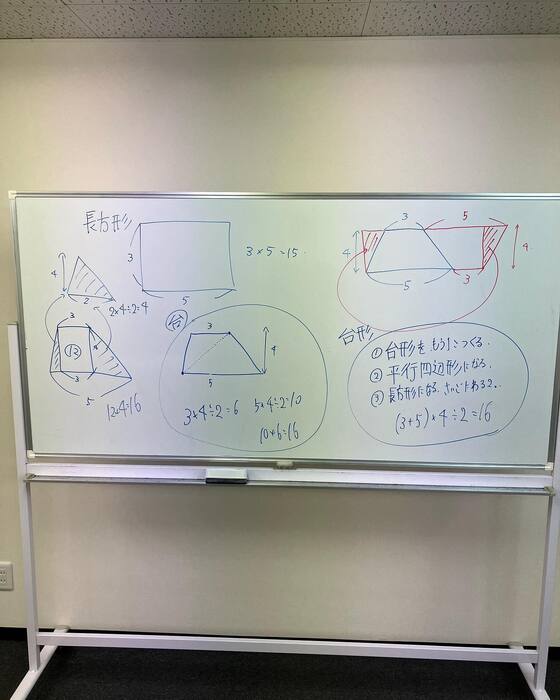 長方形
3
5
3×5=15
4
2
2×4÷2=4
3
12
3
5
12+4=16
台
3
4
5
3×4÷2=6
5×4÷2=10
10+6=16
3
5
4
4
5
3
台形
① 台形をもう1こつくる。
② 平行四辺形になる。
③ 長方形になる。さいごにわる2。
(3+5)×4÷2=16